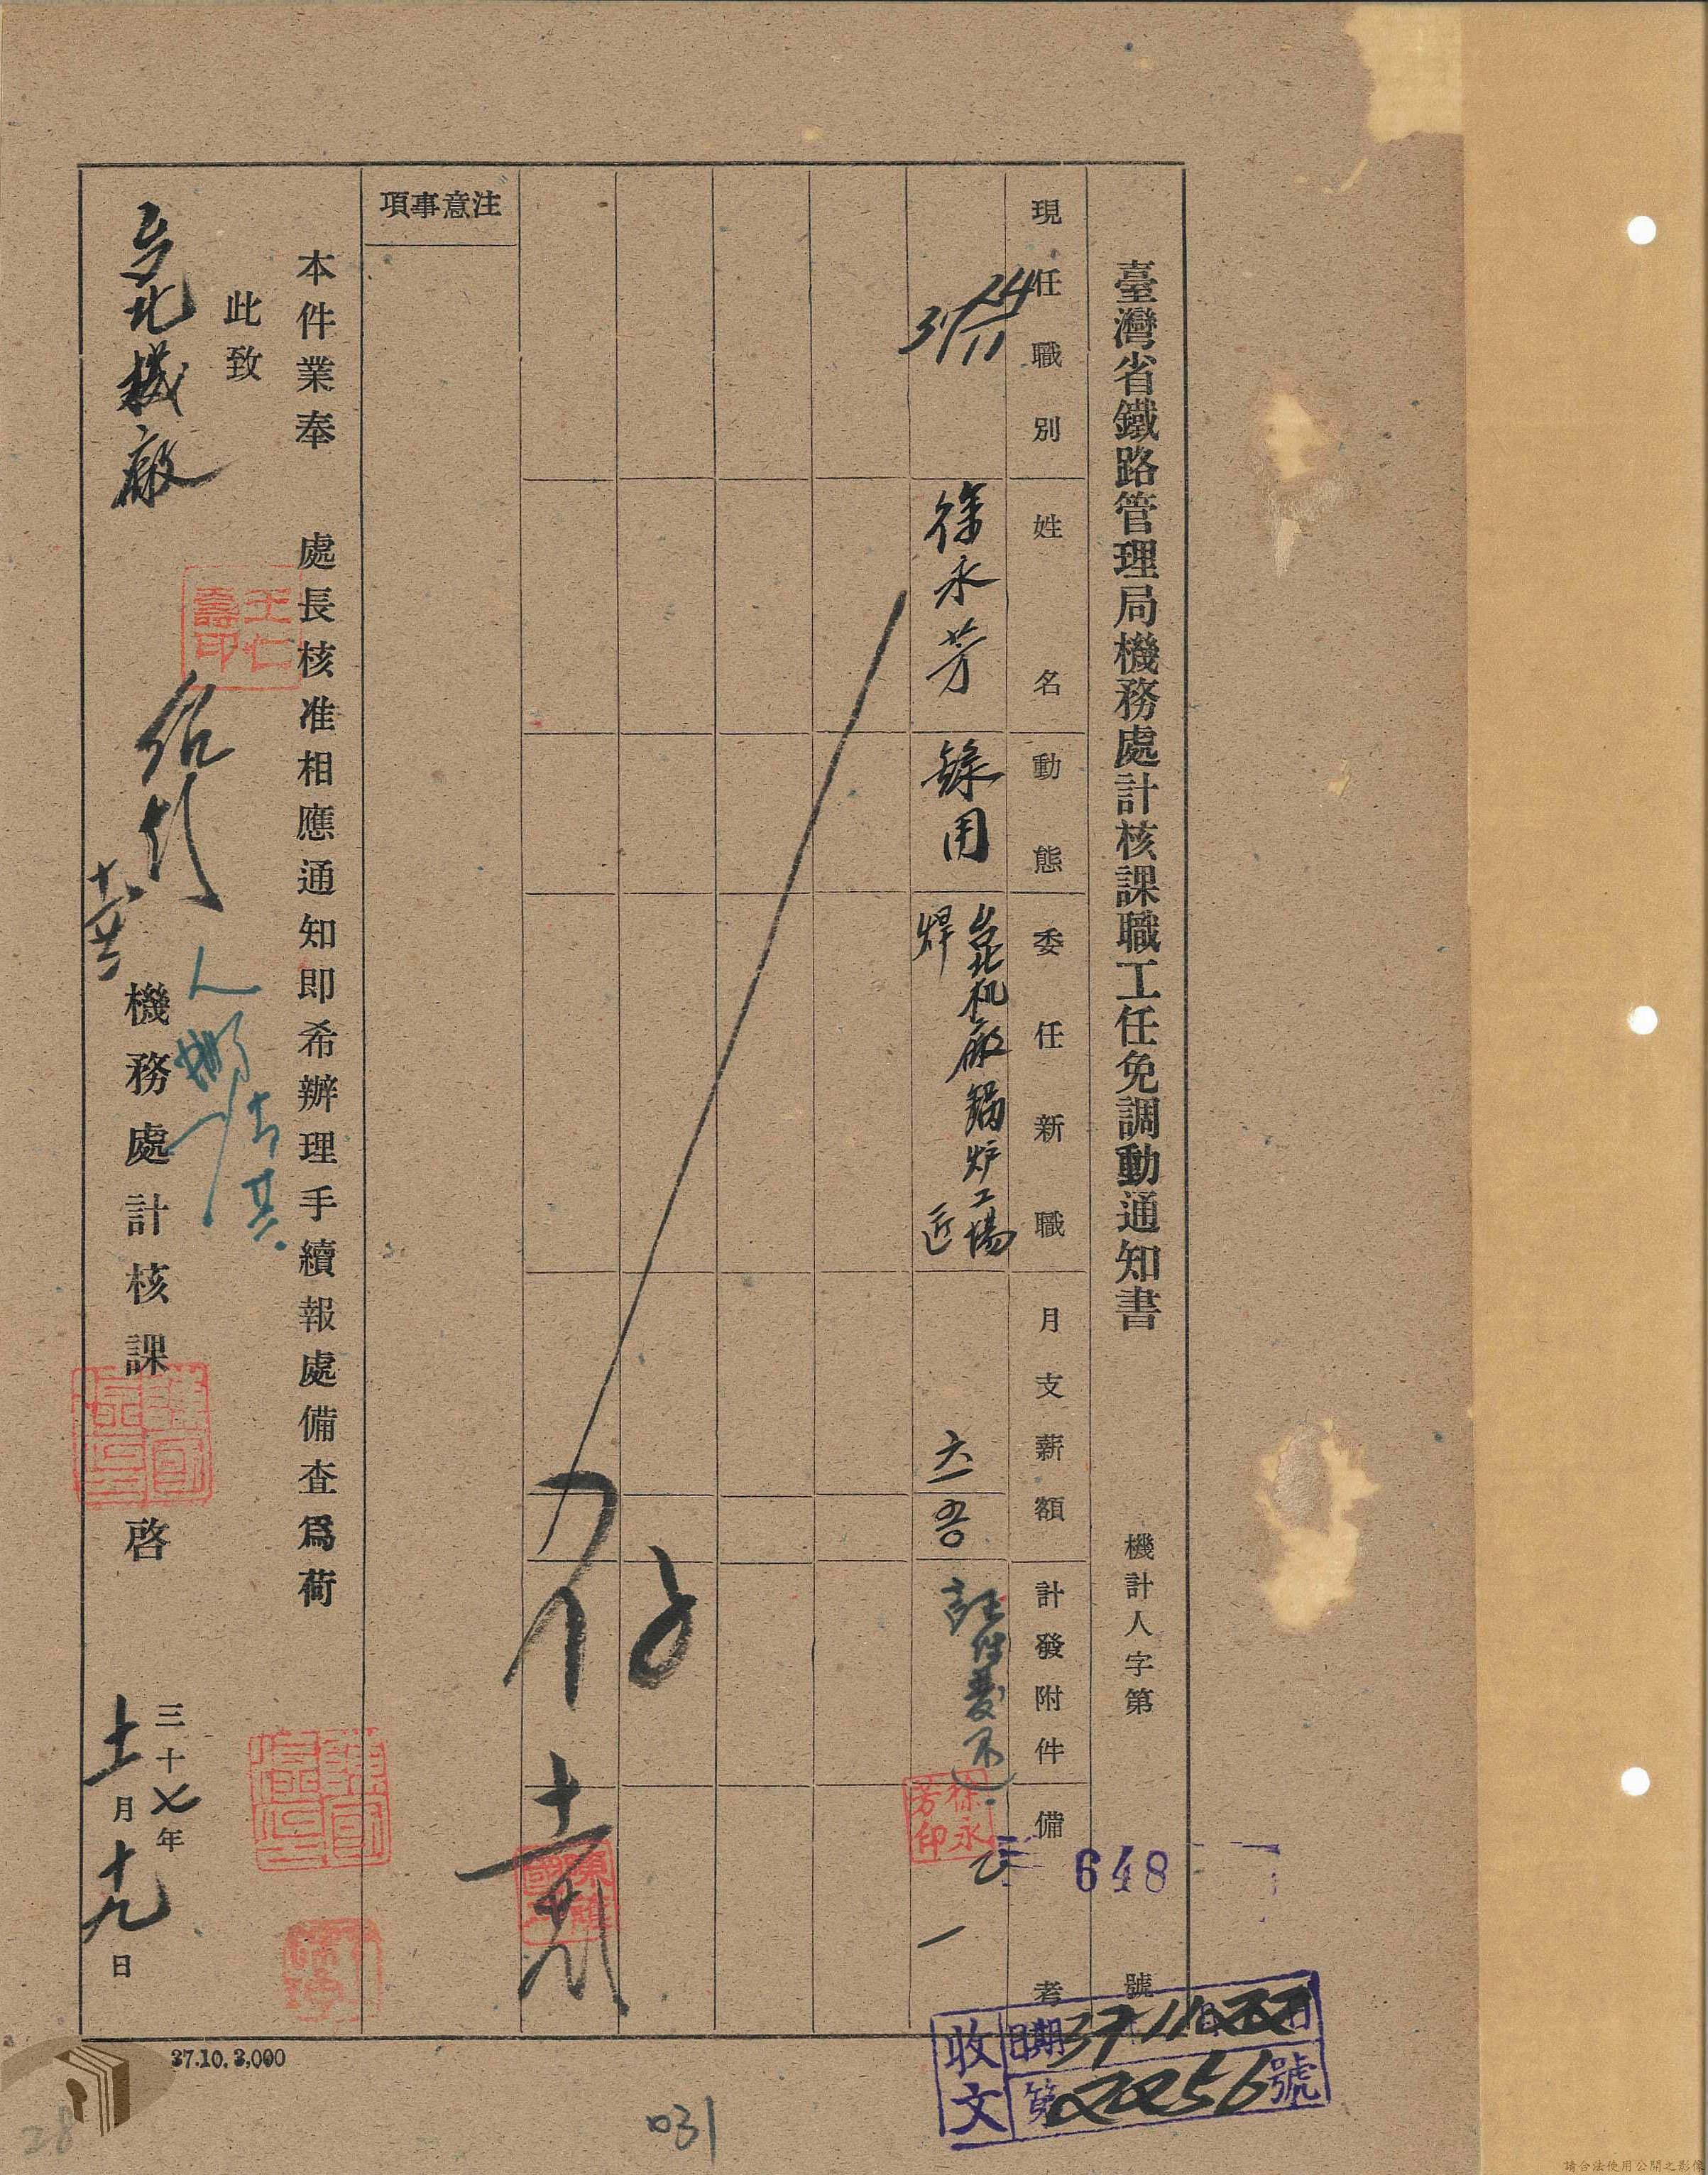 臺灣省鐵路管理局機務處計核課職工任免調動通知書
機計人字第 648 號
現任職別
姓名
動態
委任新職
月支薪額
計發附件
備考
24/11
徐永芳
錄用
台北机廠鍋炉工場
焊 匠
徐永芳印
注意事項
本件業奉 處長核准相應通知即希辦理手續報處備查爲荷
此致
台北機廠
王仁壽印
機務處計核課 啓
三十七年
十一月十九日
收文
日期 37 11 22
第 2256 號
37.10. 3,000
031
28
請合法使用公開之影像